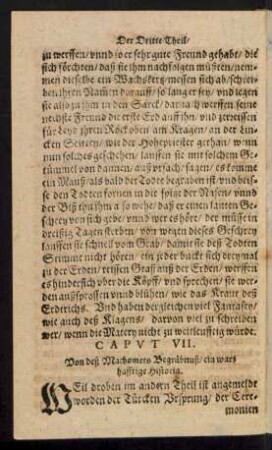 Der Dritte Theil/
zu werffen/ vnnd so er sehr gute Freund gehabt/ die
sich förchten/ daß sie ihm nachfolgen müsten/ nem-
men dieselbe ein Wachskertz/ messen sich ab/ schrei-
ben ihren Namen darauff/ so lang er sey/ vnd legen
sie also zu ihm in den Sarck/ darnach werffen seine
nechste Freund die erste Erd auff ihn/ vnd zerreissen
für leyd ihren Rock oben am Kragen/ an der lin-
cken Seiten/ wie der Hohepriester gethan/ wenn
nun solches geschehen/ lauffen sie mit solchem Ge-
tümmel von dannen/ auß vrsach/ sagen/ es komme
ein Mauß/ als bald der Todte begraben ist/ vnd beis-
se den Todten fornen in die spitze der Nasen/ vnnd
der Biß thu ihm so wehe/ daß er einen lauten Ge-
schrey von sich gebe/ vnnd wer es höre/ der müsse in
dreissig Tagen sterben/ von wegen dieses Geschrey
lauffen sie schnell vom Grab/ damit sie deß Todten
Stimme nicht hören/ ein jeder bückt sich dreymal
zu der Erden/ reissen Graß auß der Erden/ werffen
es hindersich vber die Köpff/ vnd sprechen/ sie wer-
den außsprossen vnnd blühen/ wie das Kraut deß
Erderichs. Vnd haben der gleichen viel Fantasey/
wie auch deß Klagens/ darvon viel zu schreiben
wer/ wenn die Matery nicht zu weitleufftig würde.
CAPVT VII.
Von deß Machomets Begräbnuß/ ein wars
hafftige Historia.
WEil droben im andern Theil ist angemeldt
worden der Türcken Vrsprung/ der Cere-
monien